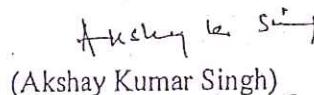 Akshay K Singh
(Akshay Kumar Singh)